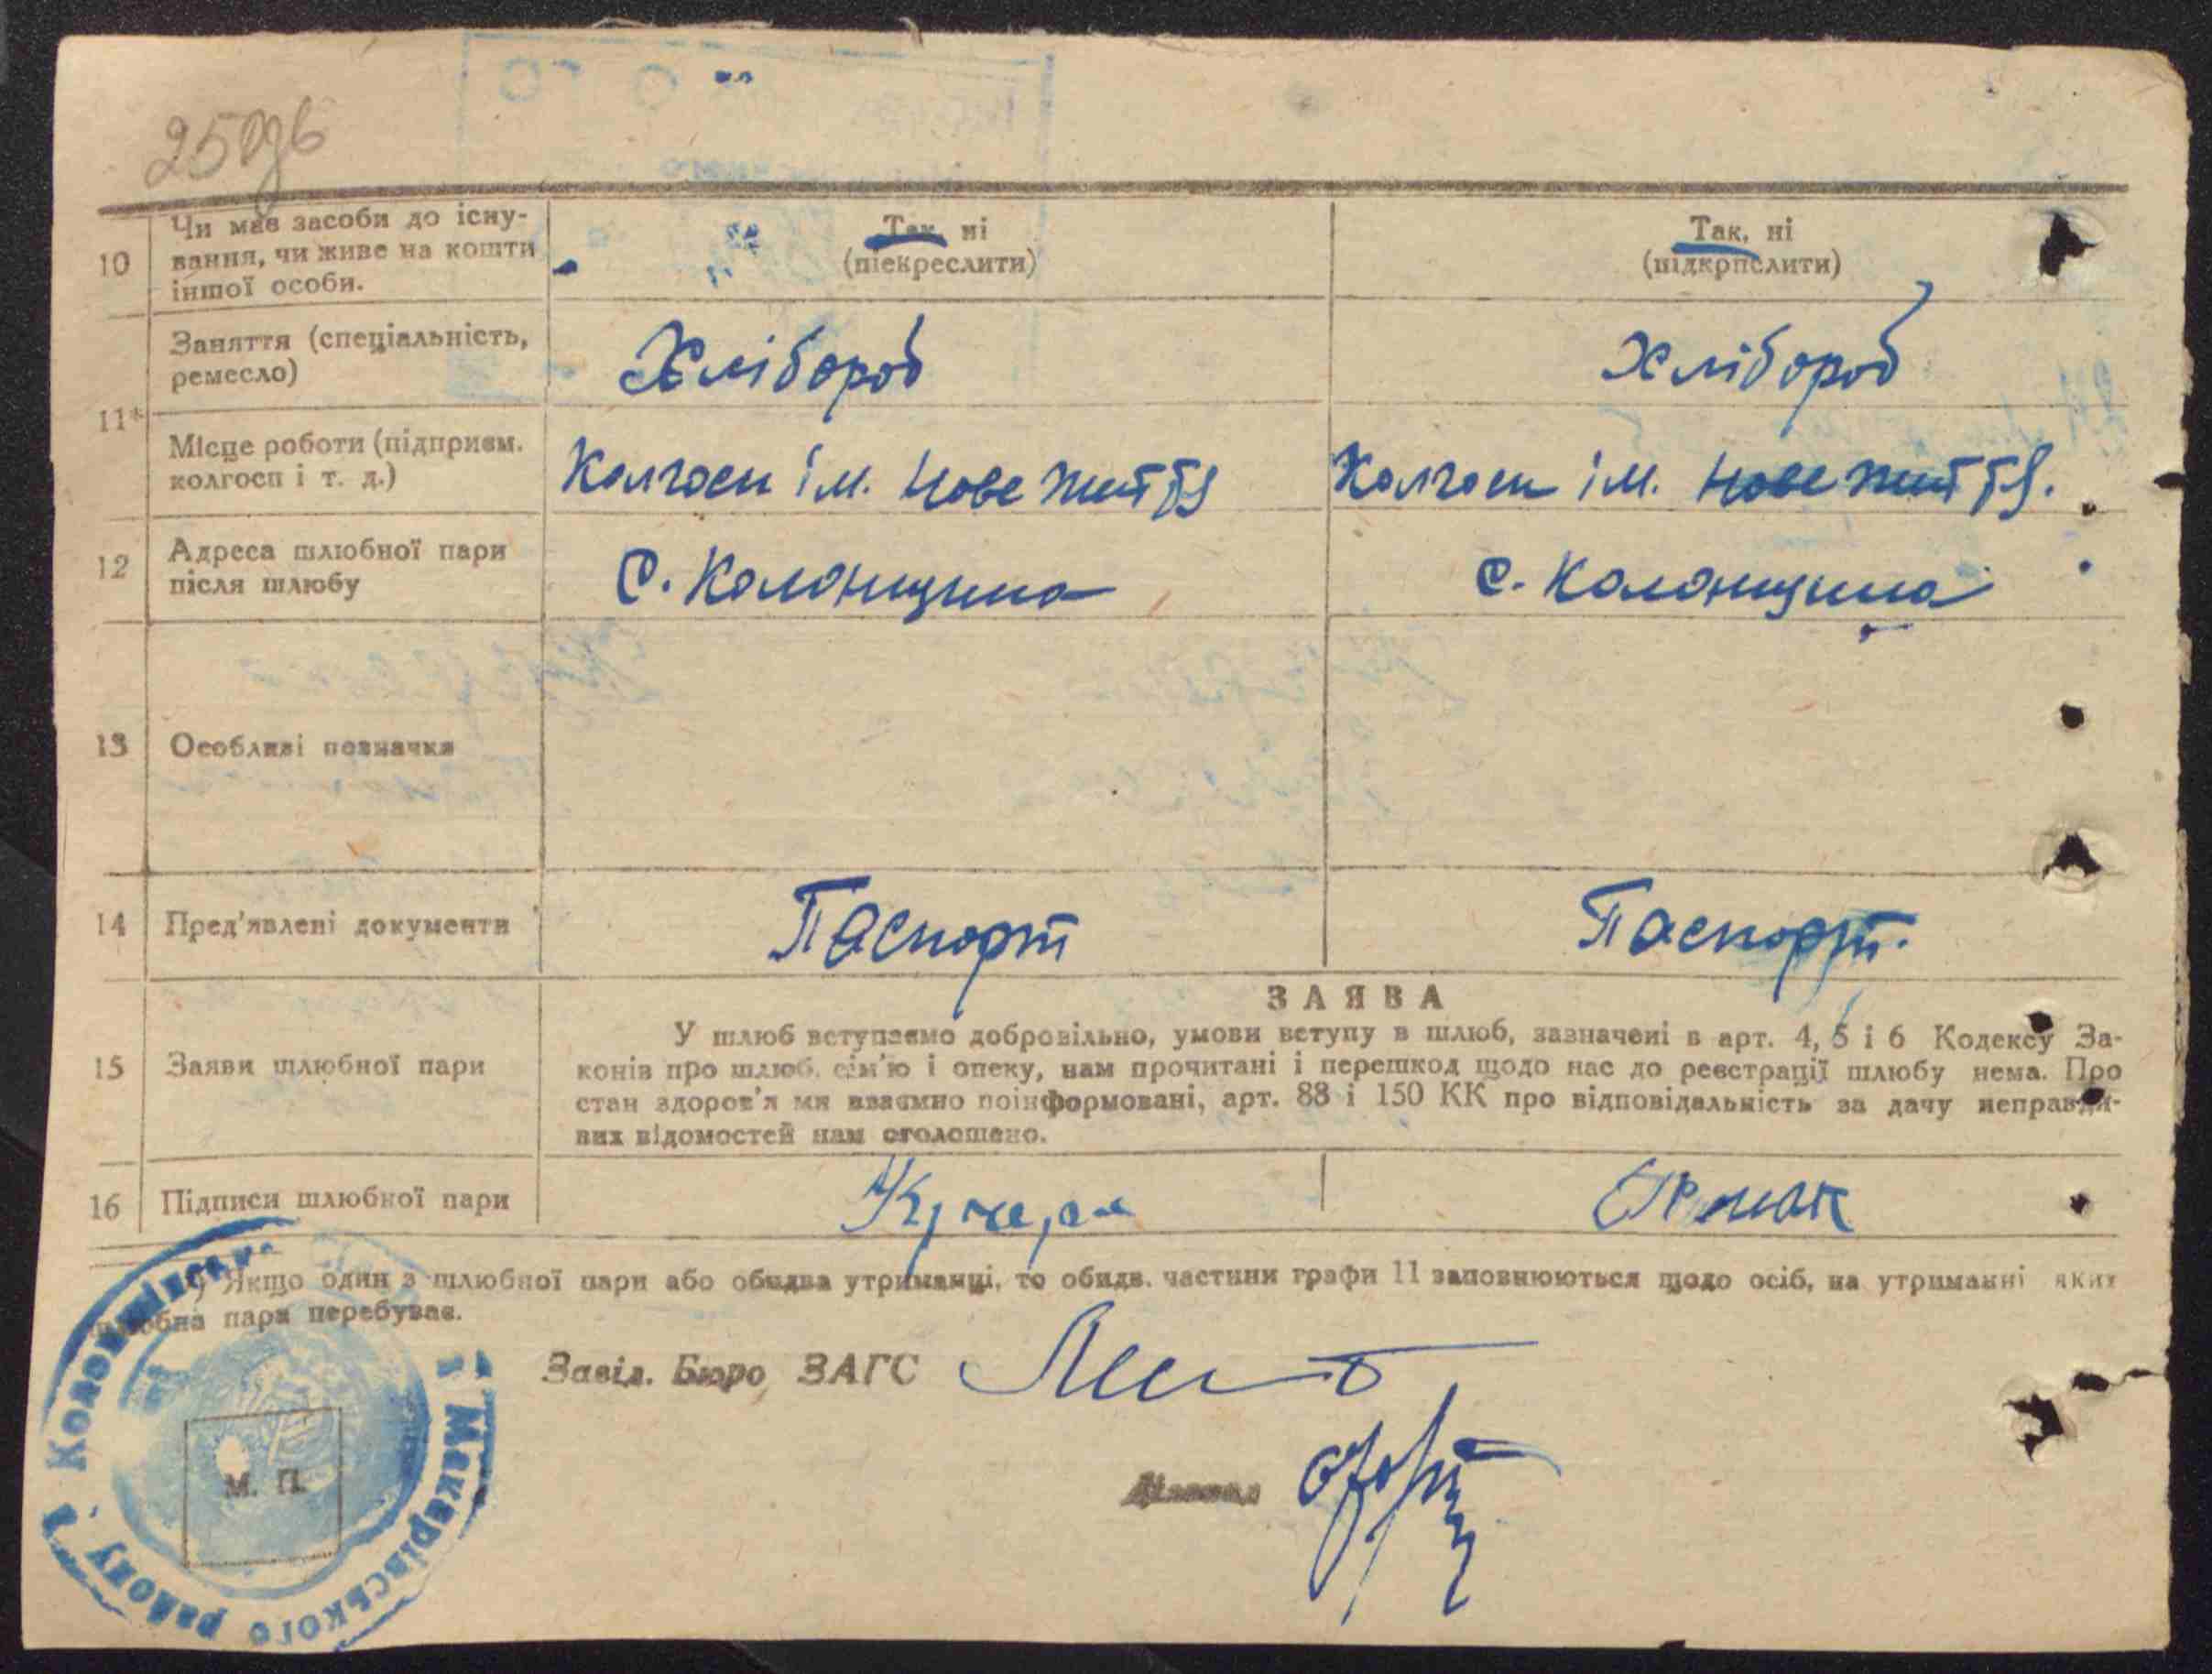 25
10 Чи має засоби до існу-
вання, чи живе на кошти
іншої особи.
Так, ні
(піекреслити)
Так, ні
(підкрпслити)
11*
Заняття (спеціальність,
ремесло)
Хлібороб
Хлібороб
Місце роботи (підприєм.
колгосп і т. д.)
Колгосп ім. Нове життя
Колгосп ім. Нове життя.
12 Адреса шлюбної пари
після шлюбу
с. Колонщина
с. Колонщина
13 Особливі позначки
14 Пред'явлені документи
Паспорт
Паспорт.
15 Заяви шлюбної пари
ЗАЯВА
У шлюб вступаємо добровільно, умови вступу в шлюб, зазначені в арт. 4, 5 і 6 Кодексу За-
конів про шлюб, сім'ю і опеку, нам прочитані і перешкод щодо нас до реєстрації шлюбу нема. Про
стан здоров'я ми взаємно поінформовані, арт. 88 і 150 КК про відповідальність за дачу неправди-
вих відомостей нам оголошено.
16 Підписи шлюбної пари
Кучера
*) Якщо один з шлюбної пари або обидва утриманці, то обидв. частини графи 11 заповнюються щодо осіб, на утриманні яких
шлюбна пара перебуває.
Завід. Бюро ЗАГС
М. П.
Макарівського району